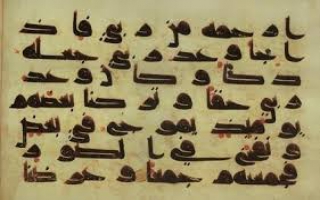 ا رحمه من ربي فاذ
ا جا وعد ربي جعله
دكا و كان وعد
ربي حقا و تركنا بعضهم
يومئذ يموج في بعض
و نفخ في الصور
فجمعنهم جمعا و عرضنا